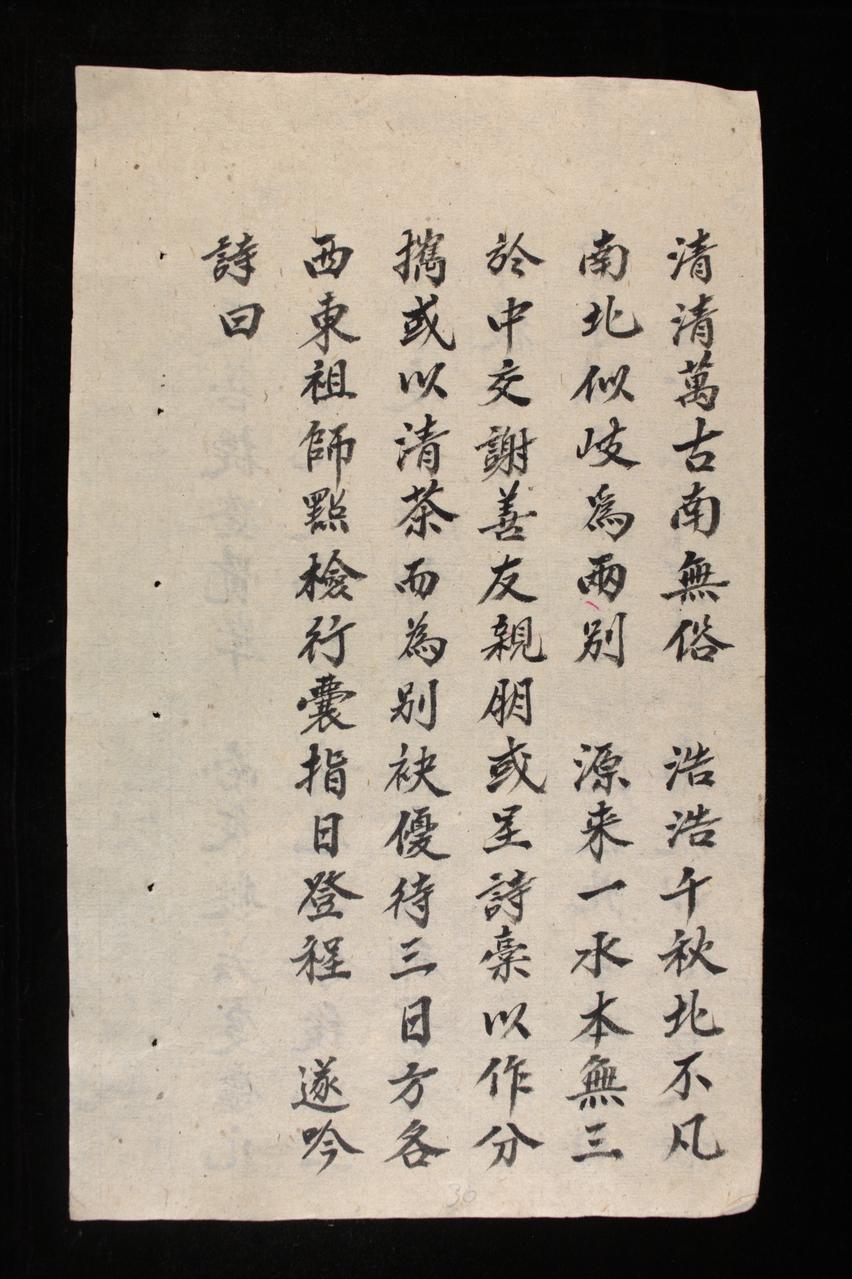 清清萬古南無俗　浩浩千秋北不凡
南北似岐爲兩別　源来一水本無三
於中交謝善友親朋或呈詩稾以作分
攜或以清茶而為別袂優待三日方各
西東祖師點檢行囊指日登程　遂吟
詩曰
30